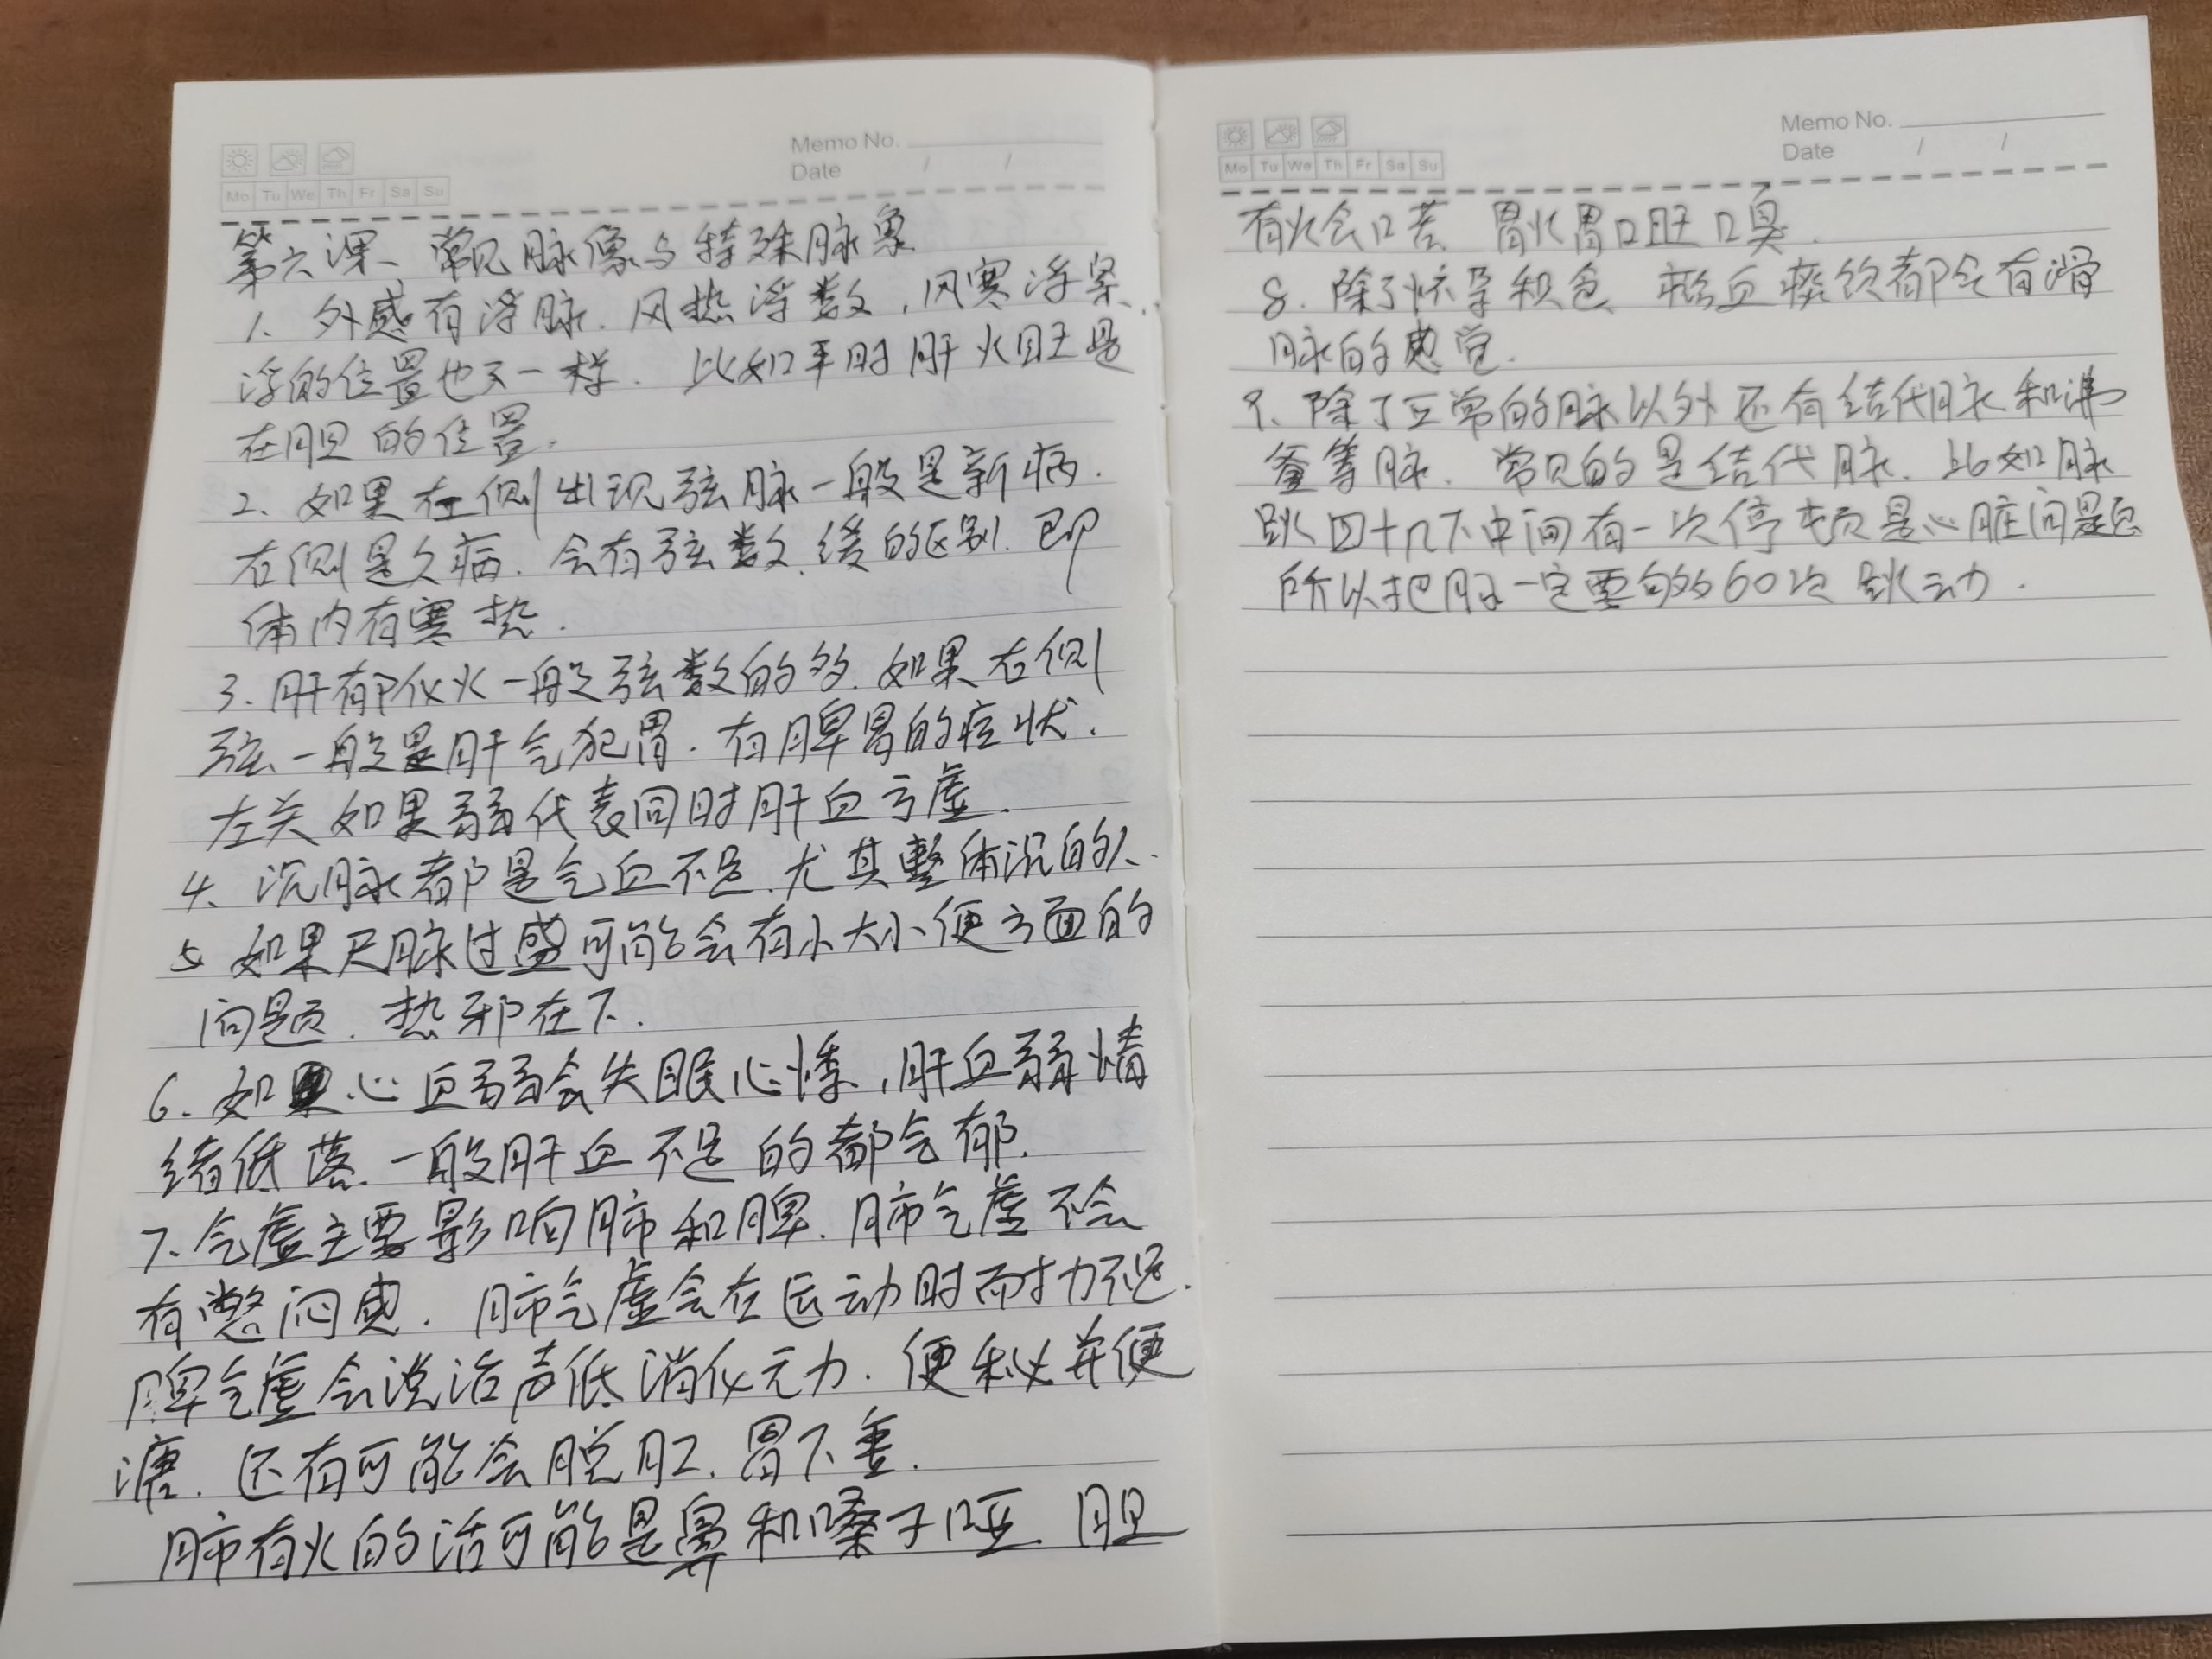 Memo No.
Date / /
Mo Tu We Th Fr Sa Su
第六课、常见脉像与特殊脉象
1、外感有浮脉.风热浮数,风寒浮紧,
浮的位置也不一样. 比如平时肝火旺是
在胆的位置.
2、如果左侧出现弦脉一般是新病.
右侧是久病.会有弦数、缓的区别.即
体内有寒热.
3.肝郁化火一般弦数的多.如果右侧
弦一般是肝气犯胃.有脾胃的症状.
左关如果弱代表同时肝血亏虚.
4、沉脉都是气血不足.尤其整体沉的人.
5 如果尺脉过盛可能会有小大小便方面的
问题.热邪在下.
6.如果心血弱会失眠心悸,肝血弱情
绪低落.一般肝血不足的都会郁.
7、气虚主要影响肺和脾.肺气虚不会
有憋闷感.肺气虚会在运动时耐力不足.
脾气虚会说话声低消化无力.便秘并便
溏.还有可能会脱肛.胃下垂.
肺有火的话可能是鼻和嗓子哑.胆
Memo No.
Date / /
Mo Tu We Th Fr Sa Su
有火会口苦 胃火胃口旺口臭.
8.除了怀孕积食 瘀血痰饮都会有滑
脉的感觉.
9、除了正常的脉以外还有结代脉和沸
釜等脉.常见的是结代脉.比如脉
跳四十几下中间有一次停顿是心脏问题
所以把脉一定要够60次跳动.